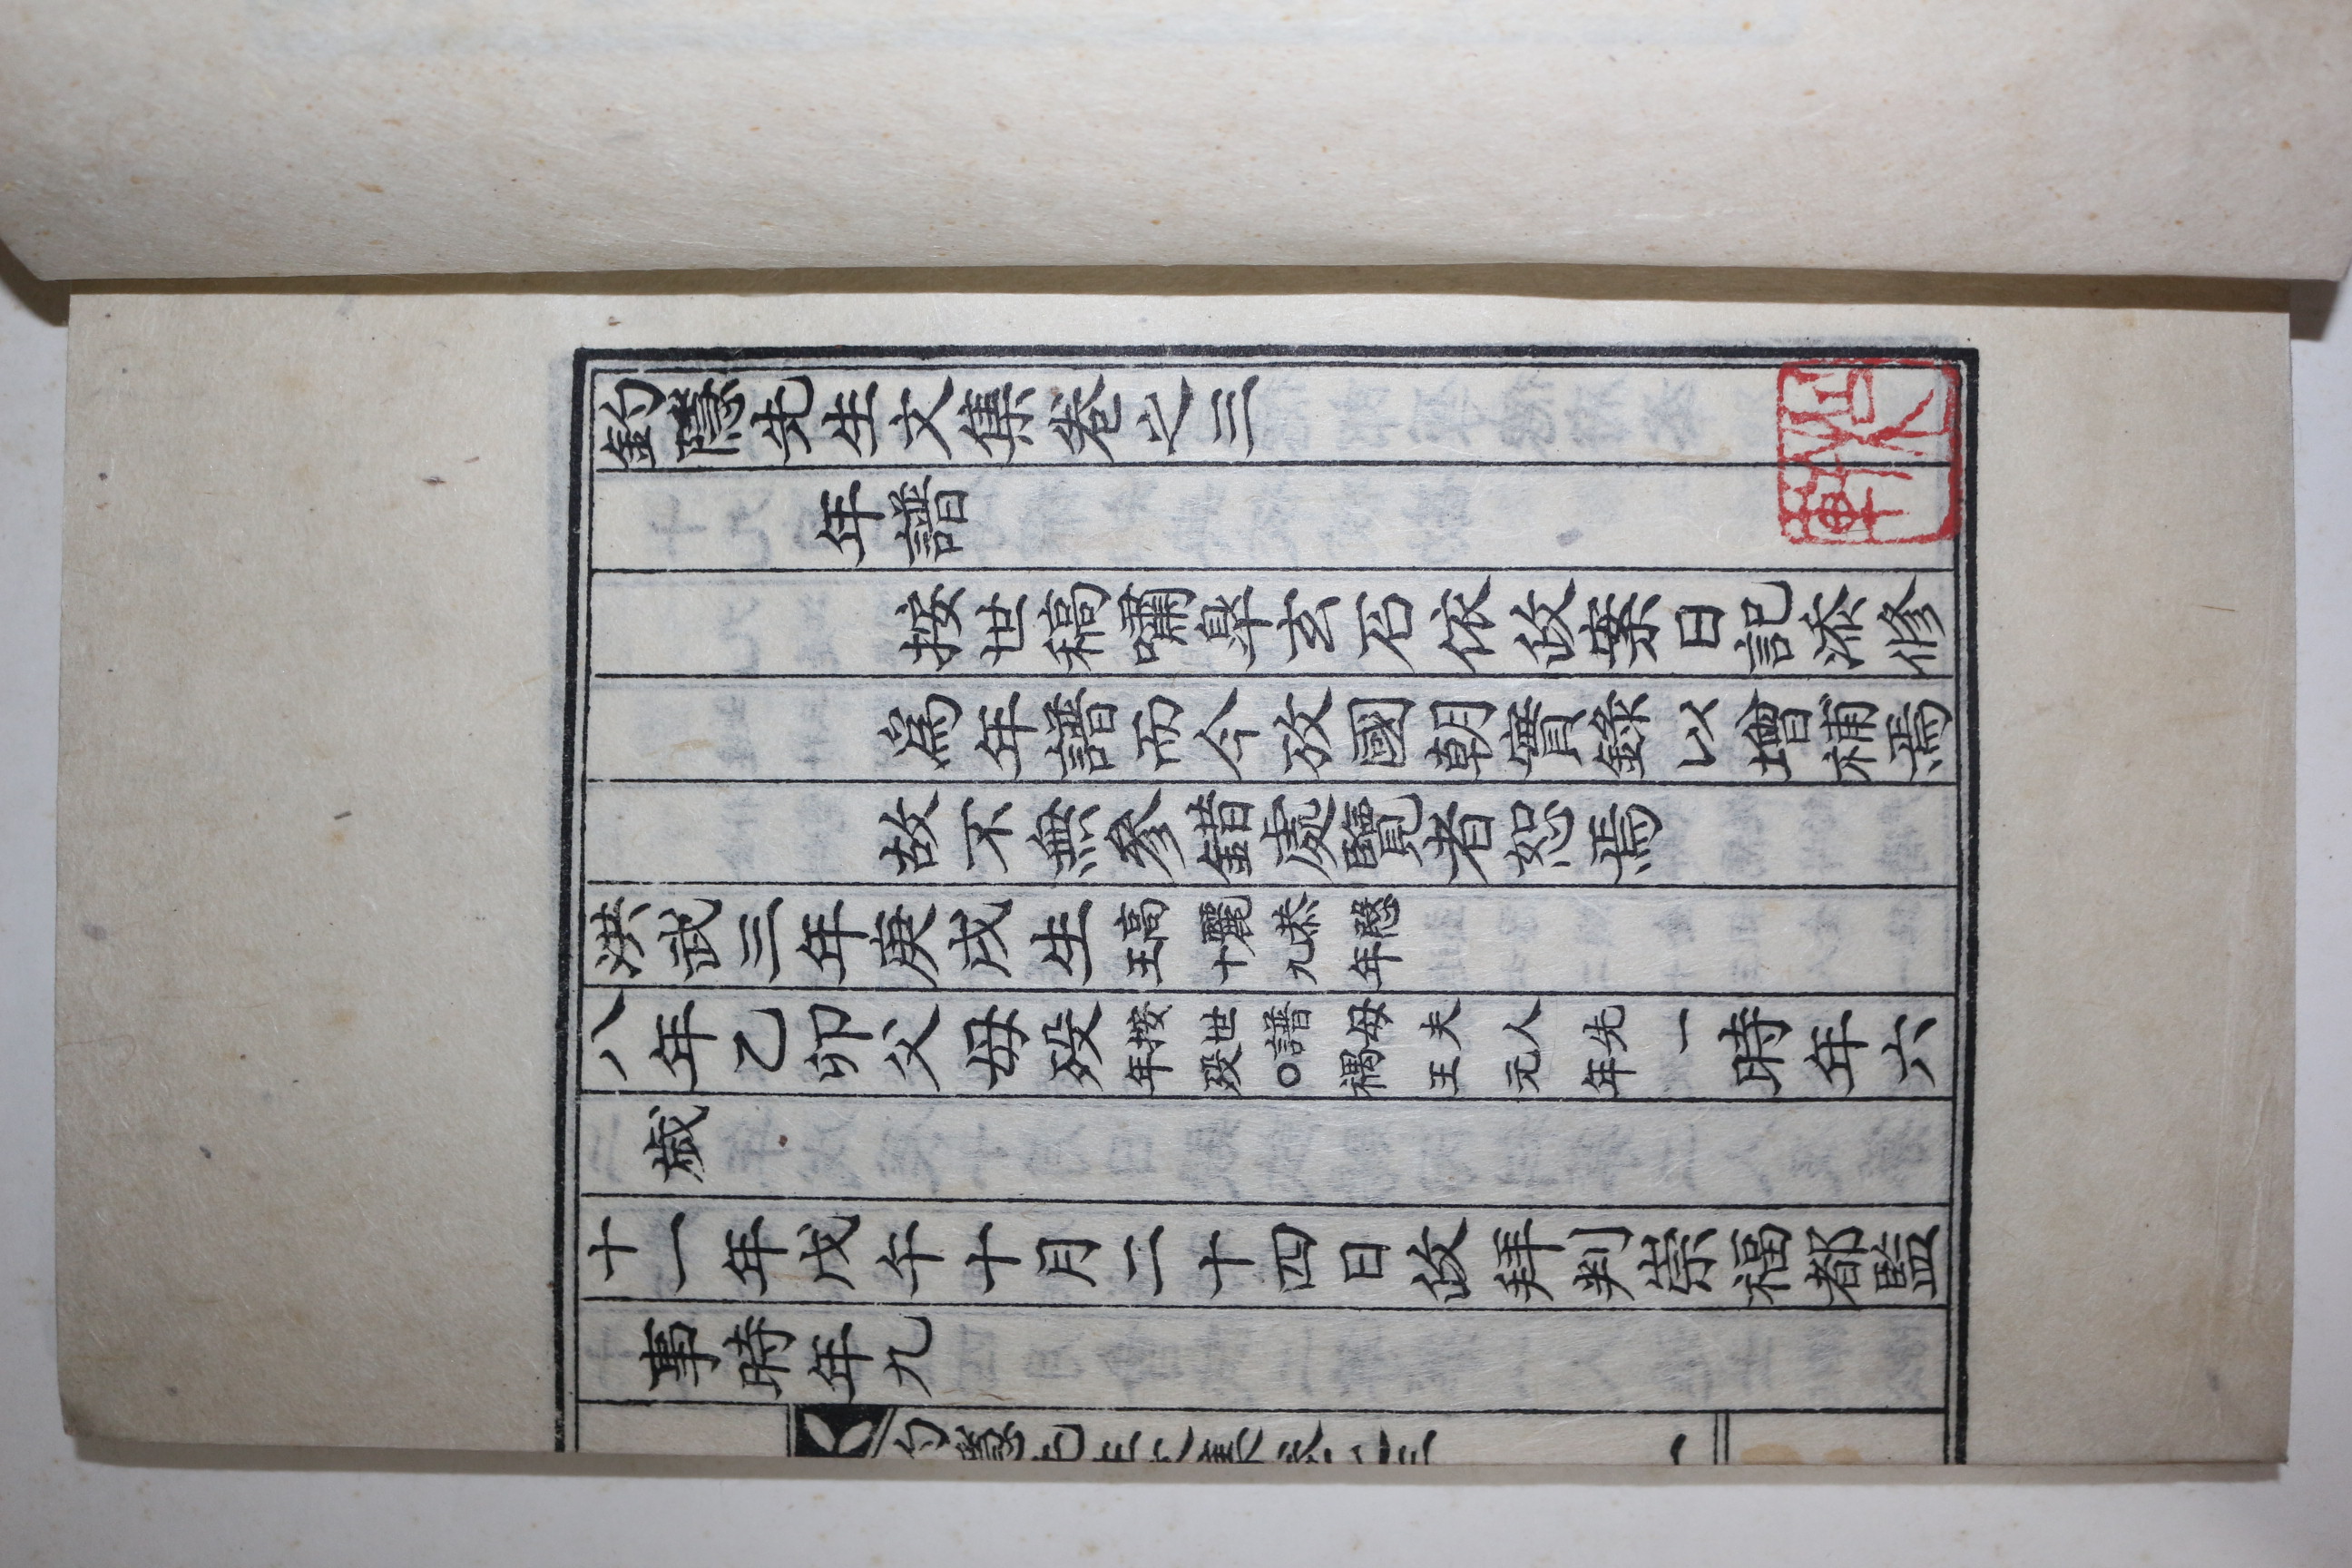 釣隱先生文集卷之三
年譜
按世稿嘯皐玄石依收案日記添修
爲年譜而今攷國朝實錄以增補焉
故不無參錯處覽者恕焉
洪武三年庚戌生高麗恭愍王十九年
八年乙卯父母歿按世譜母夫人先一年歿○禑王元年時年六
歲
十一年戊午十月二十四日收拜判崇福都監
事時年九